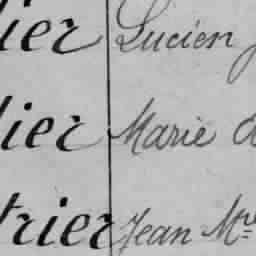 lier Lucien
lier Marie
trier Jean Mie